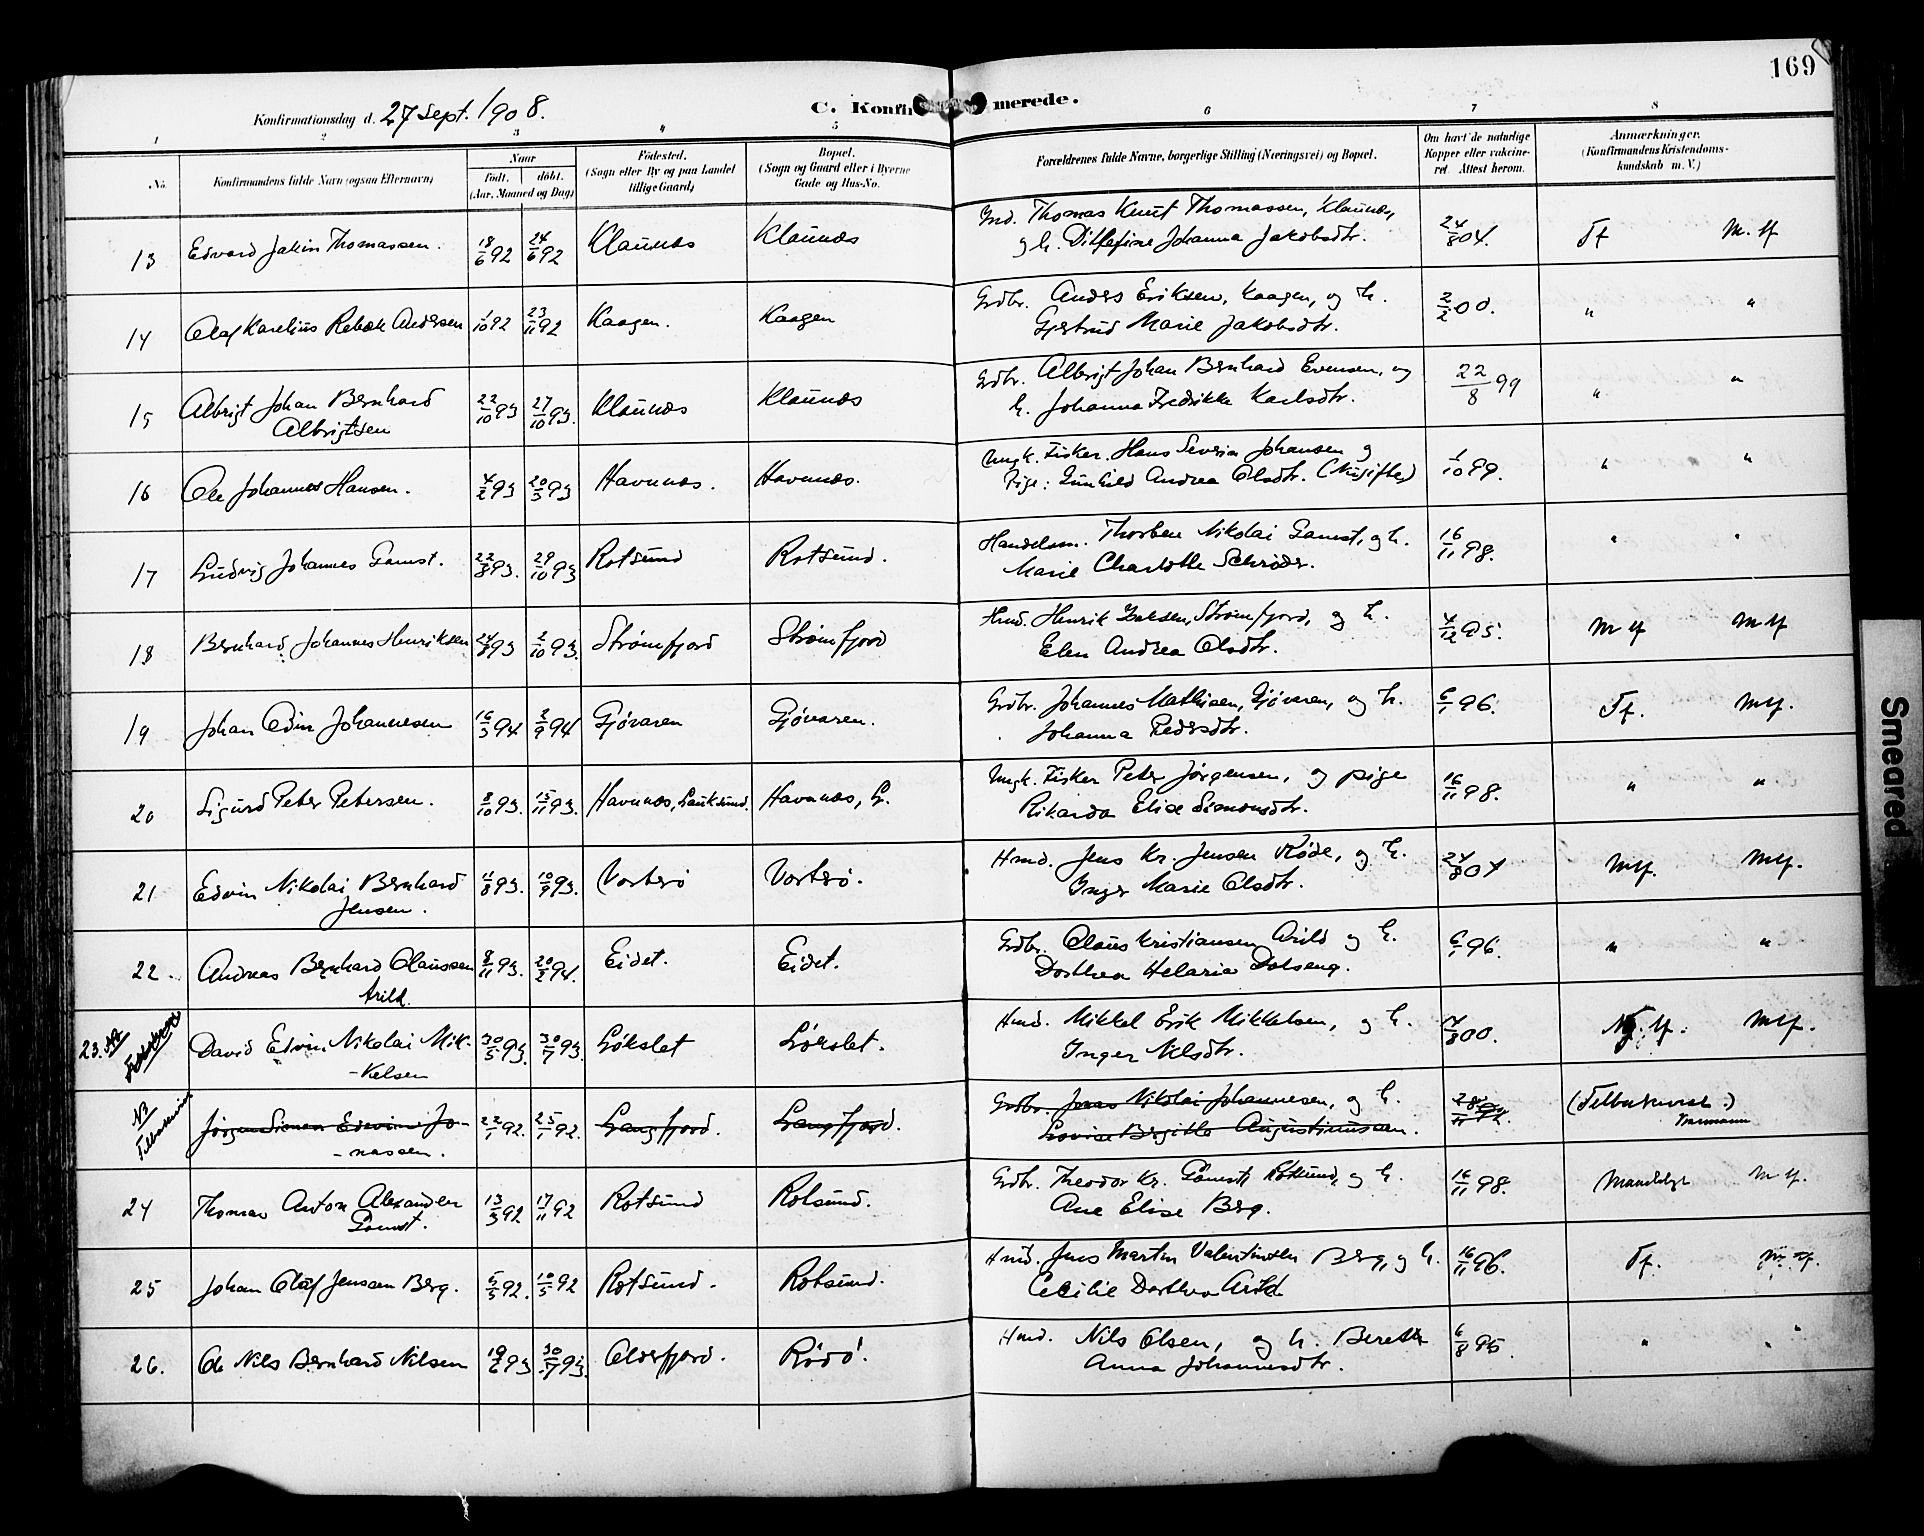 169
Konfirmationsdag d. 27 Sept. 1908.
C. Konfirmerede.
1 2 3 4 5 6 7 8
No. Konfirmandens fulde Navn (ogsaa Efternavn)
Naar født. døbt. (Aar, Maaned og Dag)
Fødested. (Sogn eller By og paa Landet tillige Gaard)
Bopæl. (Sogn og Gaard eller i Byerne Gade og Hus-No.
Forældrenes fulde Navne, borgerlige Stilling (Næringsvei) og Bopæl.
Om havt de naturlige Kopper eller vakcineret. Attest herom.
Anmærkninger. (Konfirmandens Kristendomskundskab m. V.)
13 Edvard Jakin Thomassen. 18/6 92 24/6 92 Klaunæs Klaunæs Ind. Thomas Knut Thomassen, Klaunæs,
og h. Johanna Jakobsdtr. 24/8 04. Tf M. tf
14 Olaf Karelius Rebæk Andersen 1/10 92 23/11 92 Kaagen. Kaagen Grdbr. Anders Eriksen, Kaagen, og h.
Gjertrud Marie Jakobsdtr. 2/2 00. " "
15 Albrigt Johan Bernhard
Albrigtsen 22/10 93 27/10 93. Klaunæs Klaunæs Grdbr. Albrigt Johan Bernhard Evensen, og
h. Johanna Fredrikke Karlsdtr. 22/8 99 " "
16 Ole Johannes Hansen. 4/2 93 20/3 93 Havnnæs. Havnnæs. Ungk. Fisker. Hans Severin Johansen og
Pige: Gunhild Andrea Olsdtr. (Nugifte) 1/10 99. " "
17 Ludvig Johannes Gamst. 22/8 93. 29/10 93 Rotsund Rotsund. Handelsm. Thorben Nikolai Gamst, og h.
Marie Charlotte Schrøder. 16/11 98. " "
18 Bernhard Johannes Henriksen 24/8 93 2/10 93. Strømfjord Strømfjord Hmd. Henrik Isaksen, Strømfjord, og h.
Elen Andrea Olsdtr. 4/12 95. M tf M tf
19 Johan Odin Johannesen 16/3 94 2/9 94 Gjøvaren Gjøvaren. Grdbr. Johannes Mathisen, Gjøvaren, og h.
Johanna Pedersdtr. 6/1 96. Tf. Mtf.
20 Sigurd Peter Petersen. 8/10 93. 15/11 93. Havnnæs, Lauksund. Havnnæs, L. Ungk. Fisker Peter Jørgensen, og pige
Rikarda Elise Simonsdtr. 16/11 98. " "
21 Edvin Nikolai Bernhard
Jensen. 11/8 93. 10/9 93. Vorterø Vorterø. Hmd. Jens Kr. Jensen Røde, og h.
Inger Marie Olsdtr. 24/8 04 Mtf. Mtf.
22. Andreas Bernhard Olaussen
Arild. 8/11 93. 20/2 94. Eidet. Eidet. Grdbr. Olaus Kristiansen Arild og h.
Dorthea Helaria Dalseng. 6/1 96. " "
23. David Edvin Nikolai Mik-
-kelsen 30/5 93. 30/7 93. Løkslet Løkslet. Hmd. Mikkel Erik Mikkelsen, og h.
Inger Nilsdtr. 7/8 00. Ng. tf. Mtf.
NB Jørgen Simon Edevin Jo-
-nassen. 22/1 92. 25/1 92. Langfjord. Langfjord. Grdbr. Jonas Nikolai Johannesen, og h.
Lovise Birgitte Augustinussen. (Felbukmrsk :)
24 Thomas Anton Alexander
Gamst. 13/3 92 17/11 92 Rotsund Rotsund. Grdbr. Theodor Kr. Gamst, Rotsund, og h.
Ane Elise Berg. 16/11 98. Maadelgt M tf.
25 Johan Olaf Jensen Berg. 5/3 92. 10/5 92 Rotsund. Rotsund. Hmd. Jens Martin Valentinsen Berg, og h.
Cecilie Dorthea Arild. 16/11 96. Tf. M tf.
26. Ole Nils Bernhard Nilsen 19/6 93 30/7 93. Olderfjord. Rødø. Hmd. Nils Olsen, og h. Berethe
Anna Johannesdtr. 6/8 95. " "
Smeared